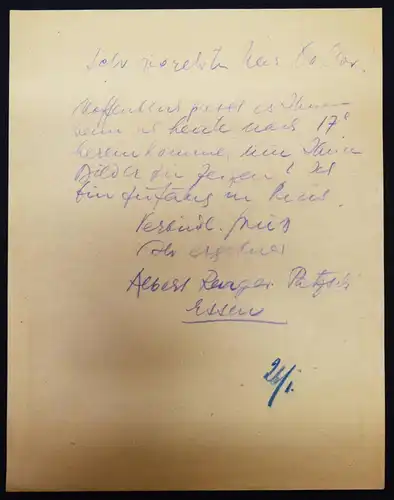 Sehr geehrter Herr Doktor.
Hoffentlich passt es Ihnen
wenn ich heute nach 17°
herein komme, um Ihnen
Bilder zu zeigen! Ich
bin anfangs in
Verbindl. Gruß
Ihr ergebener
Albert Renger-Patzsch
Essen
26/I.